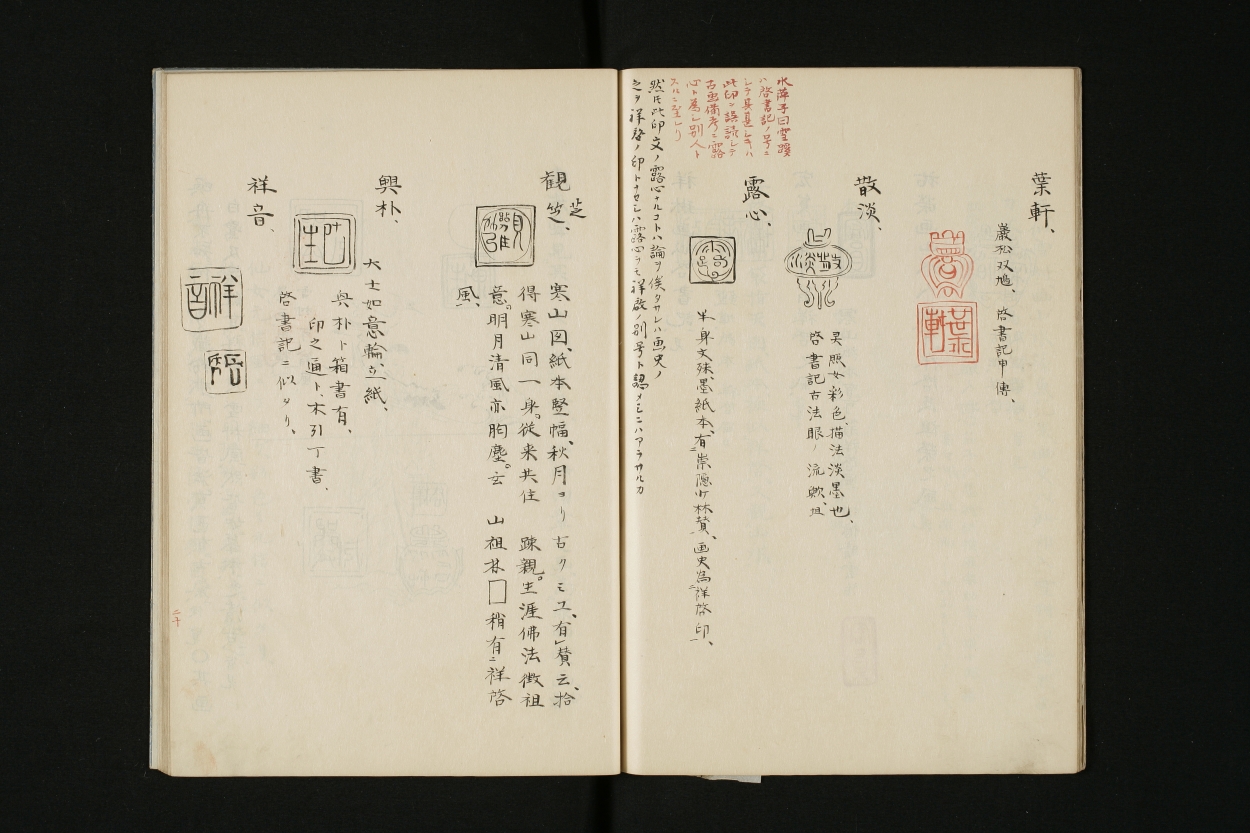 葉軒、
巖松双鳩、啓書記申傳、
散淡、
呉照女彩色、描法淡墨也、
啓書記古法眼ノ流歟、且
水萍子曰雪蹊
ハ啓書記ノ号ニ
シテ其甚シキハ
此印ヲ誤読シテ
古画備考ニ露
心ト為シ別人ト
スルニ至レリ
露心、
半身文殊、墨紙本、有崇隠少林賛、画史為祥啓印、
然ドモ此印文ノ露心ナルコトハ論ヲ俟タサレハ画史ノ
之ヲ祥啓ノ印トナセシハ露心ヲモ祥啓ノ別号ト認メシニハアラサルカ
観竺、
芝
寒山図、紙本竪幅、秋月ヨリ古クミユ、有賛云、拾
得寒山同一身。従来共住 疎親。生涯佛法徴祖
意。明月清風亦胸塵。云 山祖林□稍有祥啓
風、
興朴、
大士如意輪、立紙、
興朴ト箱書有、
印之通ト、木引丁書、
啓書記ニ似タリ、
祥音、
祥音
二十